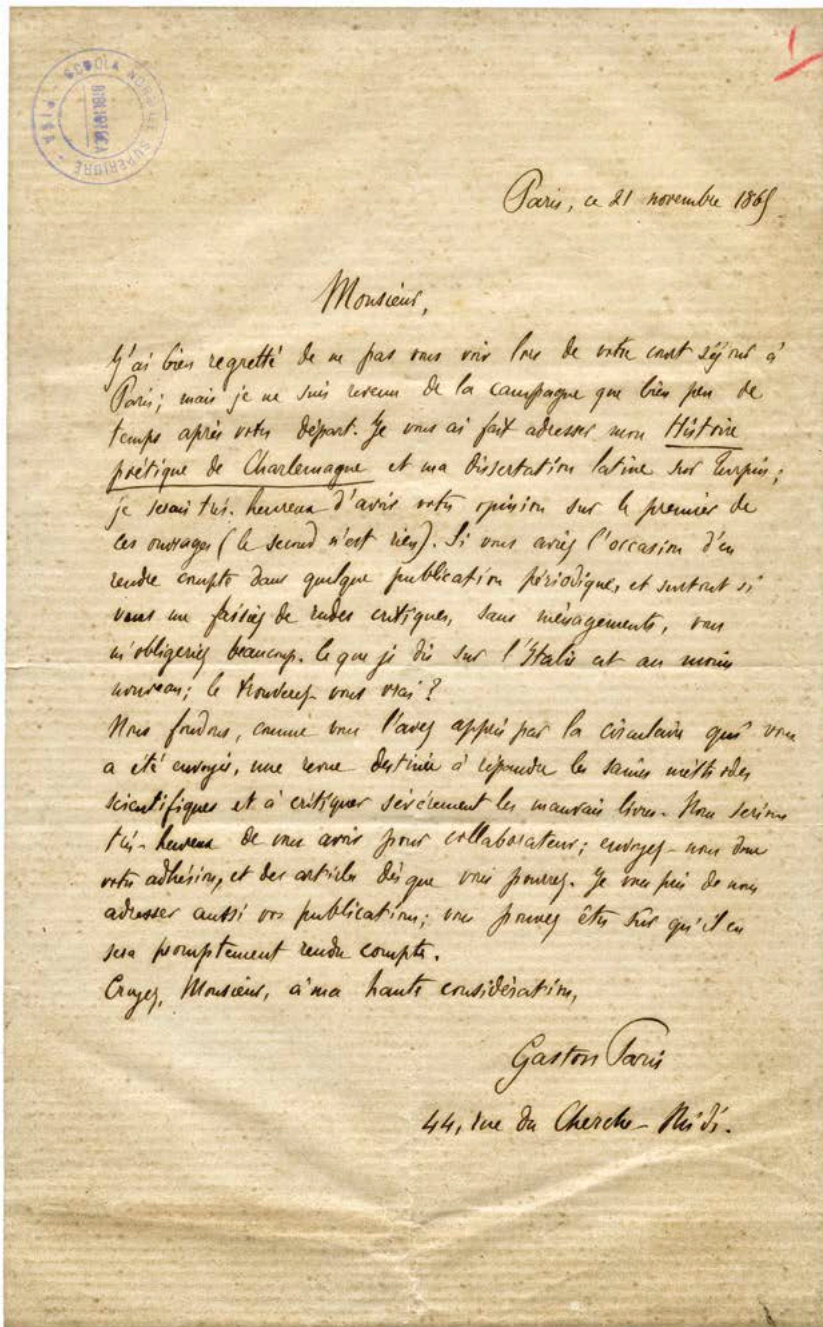 PISA - SCUOLA NORMALE SUPERIORE
BIBLIOTECA
1
Paris, ce 21 novembre 1865
Monsieur,
J'ai bien regretté de ne pas vous voir lors de votre court séjour à
Paris; mais je ne suis revenu de la campagne que bien peu de
temps après votre départ. Je vous ai fait adresser mon Histoire
poétique de Charlemagne et ma dissertation latine sur Turpin;
je serais très-heureux d'avoir votre opinion sur le premier de
ces ouvrages (le second n'est rien). Si vous aviez l'occasion d'en
rendre compte dans quelque publication périodique, et surtout si
vous me faisiez de rudes critiques, sans ménagements, vous
m'obligeriez beaucoup. Ce que je dis sur l'Italie est au moins
nouveau; le trouverez-vous vrai?
Nous fondons, comme vous l'avez appris par la circulaire qui vous
a été envoyée, une revue destinée à répandre les saines méthodes
scientifiques et à critiquer sévèrement les mauvais livres. Nous serions
très-heureux de vous avoir pour collaborateur; envoyez-nous donc
votre adhésion, et des articles dès que vous pourrez. Je vous prie de nous
adresser aussi vos publications; vous pouvez être sûr qu'il en
sera promptement rendu compte.
Croyez, Monsieur, à ma haute considération,
Gaston Paris
44, rue du Cherche-Midi.